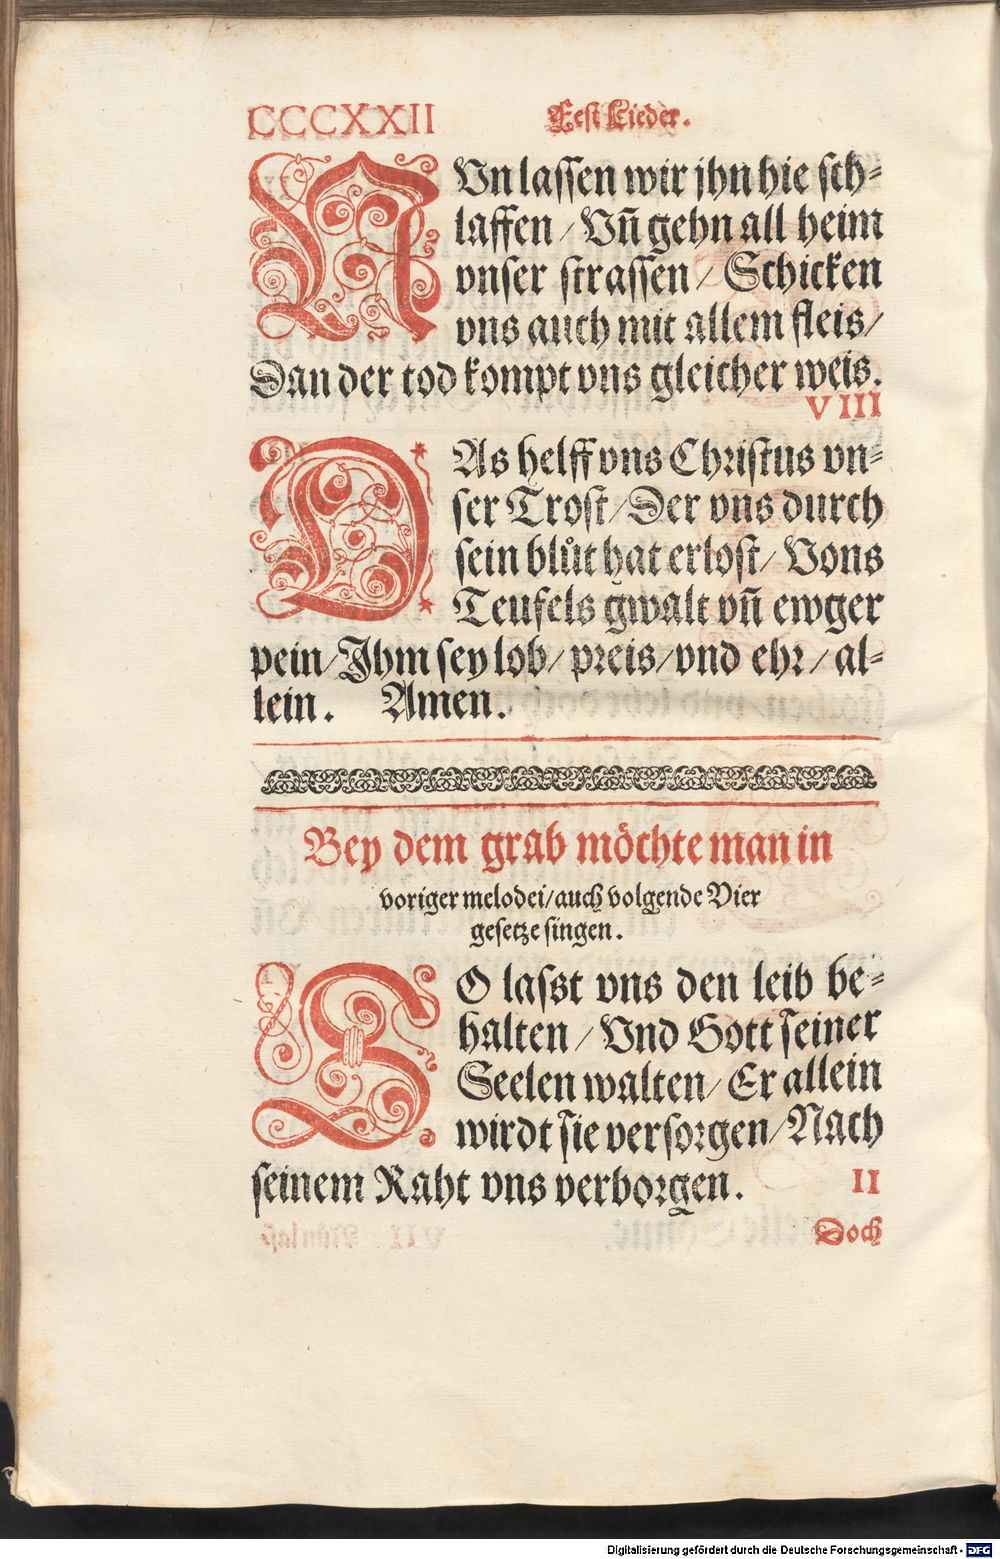 CCCXXII Fest Lieder.
NVn lassen wir jhn hie sch-
laffen / Vñ gehn all heim
vnser strassen / Schicken
vns auch mit allem fleis /
Dan der tod kompt vns gleicher weis.
VIII
DAs helff vns Christus vn-
ser Trost / Der vns durch
sein blůt hat erlost / Vons
Teufels gwalt vñ ewger
pein / Ihm sey lob / preis / vnd ehr / al-
lein. Amen.
Bey dem grab möchte man in
voriger melodei / auch volgende Vier
gesetze singen.
SO lasst vns den leib be-
halten / Vnd Gott seiner
Seelen walten / Er allein
wirdt sie versorgen / Nach
seinem Raht vns verborgen.
II
Doch
Digitalisierung gefördert durch die Deutsche Forschungsgemeinschaft - DFG